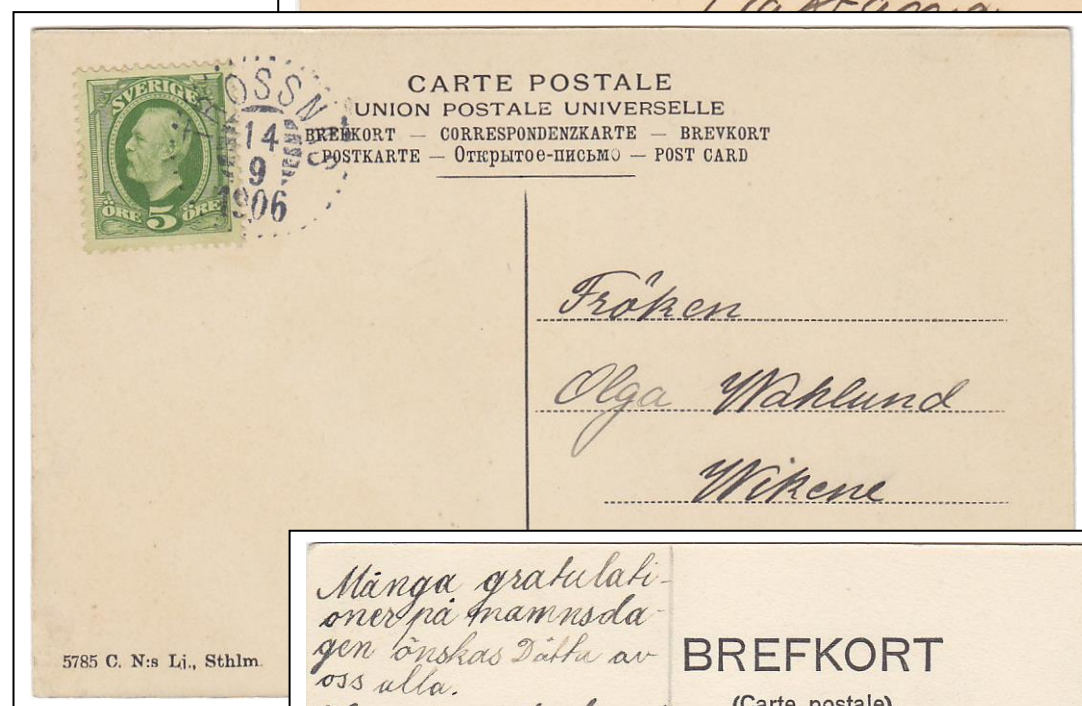 SVERIGE
ÖRE 5 ÖRE
14
9
1906
CARTE POSTALE
UNION POSTALE UNIVERSELLE
BREFKORT — CORRESPONDENZKARTE — BREVKORT
POSTKARTE — Открытое-письмо — POST CARD
Fröken
Olga Wahlund
Wikene
5785 C. N:s Lj., Sthlm.
Många gratulati-
oner på namnsda-
gen önskas av
oss alla.
BREFKORT
(Carte postale)